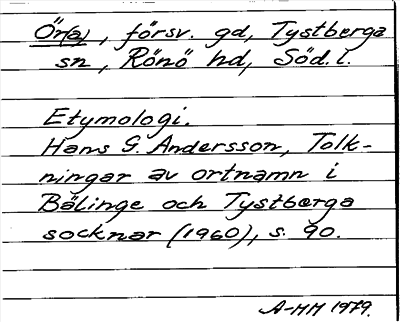 Ör(a), försv. gd, Tystberga
sn, Rönö hd, Söd. l.
Etymologi.
Hans G. Andersson, Tolk-
ningar av ortnamn i
Bälinge och Tystberga
socknar (1960), s. 90.
A-MH 1979.